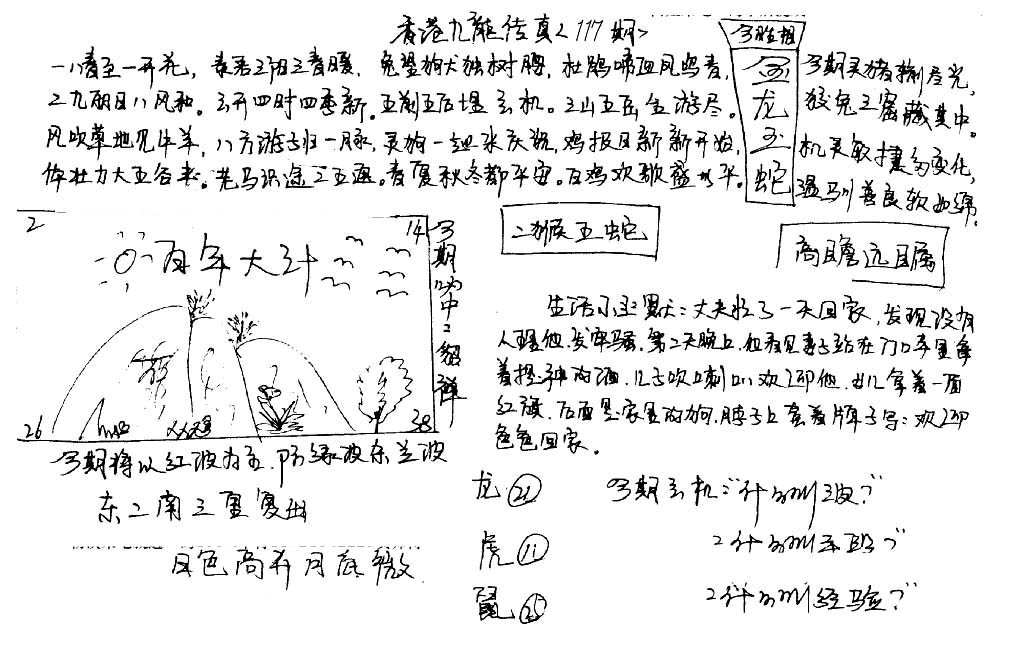 香港九龍传真<117期>
一八春至一开花，春若三阳三春暖，兔望狗犬独树腰，杜鹃啼血风鸟青，
二九丽日八风和。玄开四时四季新，五湖五后堤玄机。三山五岳全游尽。
风吹草地见牛羊，八方游子归一脉，灵狗一 来庆祝，鸡报日新新开始，
体壮力大五谷来。老马识途二五 。春夏秋冬都平安。百鸡欢歌盛 平。
今期灵猪 尽光，
狡兔三窟藏其中。
机灵敏捷多变化，
温 善良软如绵。
今 相
金龙玉蛇
2
14
百年大计
26
38
今期 中二组 
二猴五蛇
高瞻远瞩
今期将以红波为主，防绿波东兰波
东二南三重复出
日色高升月底 
生活小幽默：丈夫忙了一天回家，发现没有
人理他，发牢骚，第二天晚上，他看见妻子站在门口手里拿
着提神的酒，儿子吹喇叭欢迎他，女儿拿着一面
红旗，后面是家里的狗，脖子上套着牌子写：欢迎
色色回家。
龙㉑
虎⑪
鼠㉕
今期玄机：“什么叫 波？”
2什么叫 ？”
2什么叫经验？”